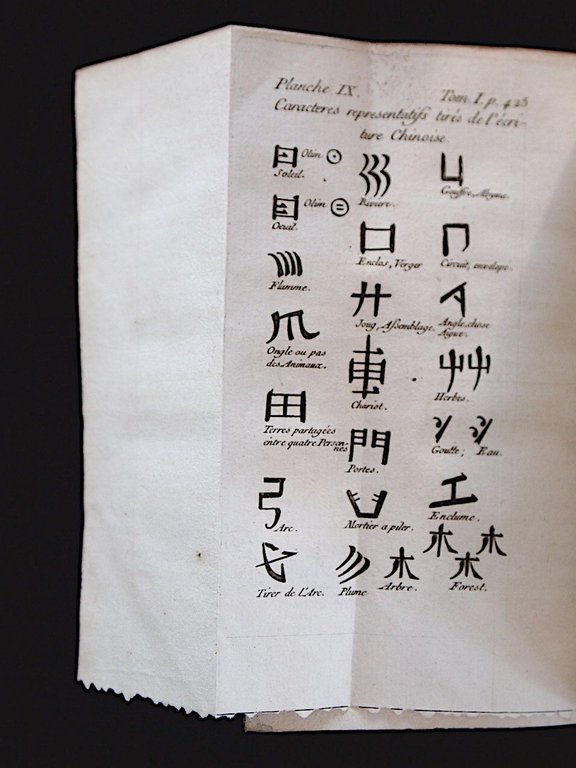 Planche IX.
Tom. I. p. 423
Caracteres representatifs tirés de l'écri-
ture Chinoise.
日 Olim ☉
Soleil.
Olim
Oeuil.
Flamme.
爪
Ongle ou pas
des Animaux.
田
Terres partagées
entre quatre Person-
nes
弓
Arc.
弋
Tirer de l'Arc.
巛
Riviere.
囗
Enclos, Verger
廾
Joug, Assemblage.
車
Chariot.
門
Portes.
臼
Mortier a piler.
彡
Plume
木
Arbre.
凵
Gouffre, Abyme.
冂
Circuit, envelope.
Angle, chose
Aigue.
艸
Herbes.
Goutte; Eau.
工
Enclume.
木 木
木
Forest.